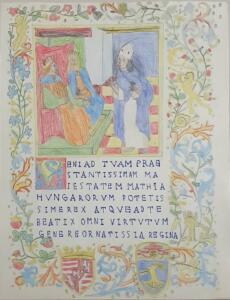 ENI AD TVAM PRAE
STANTISSIMAM MA
IESTATEM MATHIA
HUNGARORUM POTETIS
SIME REX ATQVE AD TE
BEATIX OMNI VIRTVTVM
GENERE ORNATISSIA REGINA